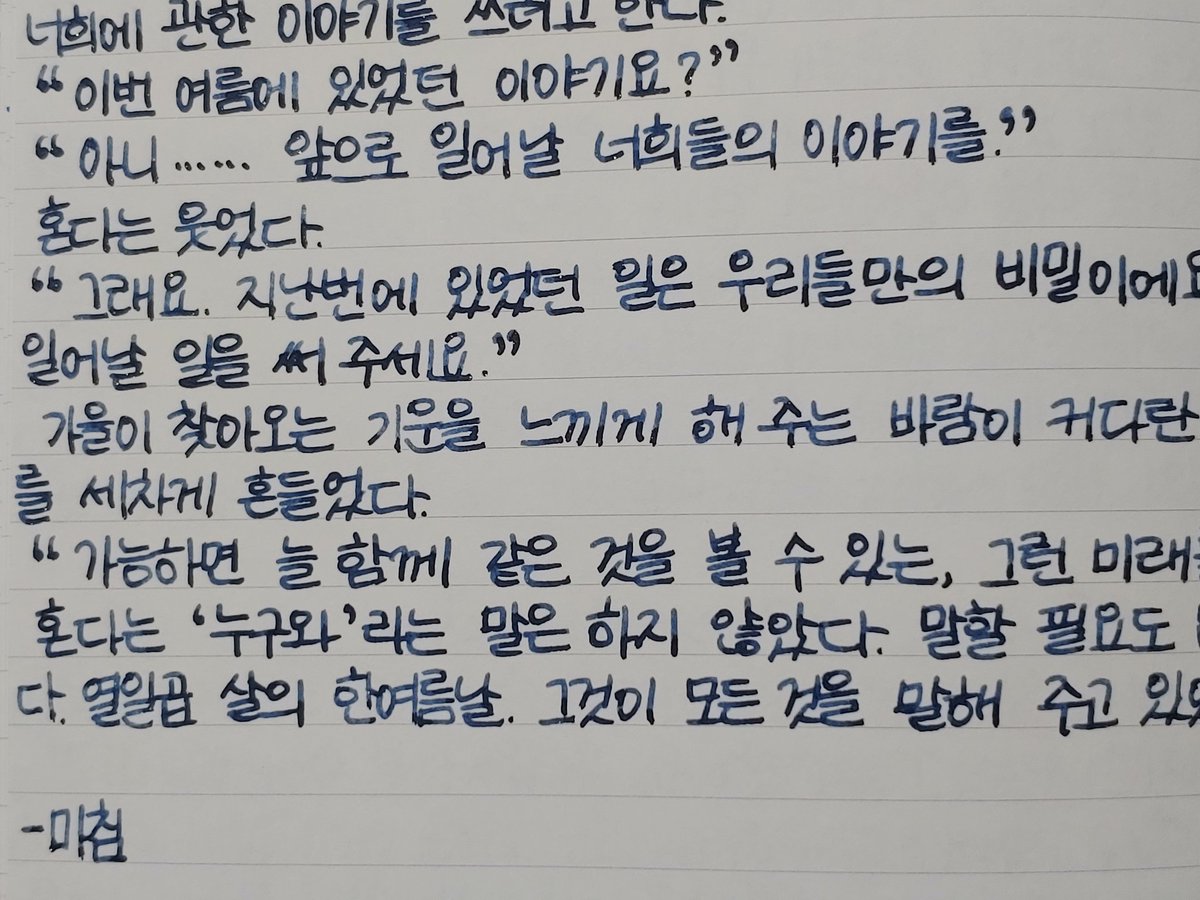 너희에 관한 이야기를 쓰려고 한다.
“이번 여름에 있었던 이야기요?”
“아니…… 앞으로 일어날 너희들의 이야기를.”
혼다는 웃었다.
“그래요. 지난번에 있었던 일은 우리들만의 비밀이에요
일어날 일을 써 주세요.”
가율이 찾아오는 기운을 느끼게 해 주는 바람이 커다란
를 세차게 흔들었다.
“가능하면 늘 함께 같은 것을 볼 수 있는, 그런 미래를
혼다는 ‘누구와’라는 말은 하지 않았다. 말할 필요도
다. 열일곱 살의 한여름날. 그것이 모든 것을 말해 주고 있었
-마침